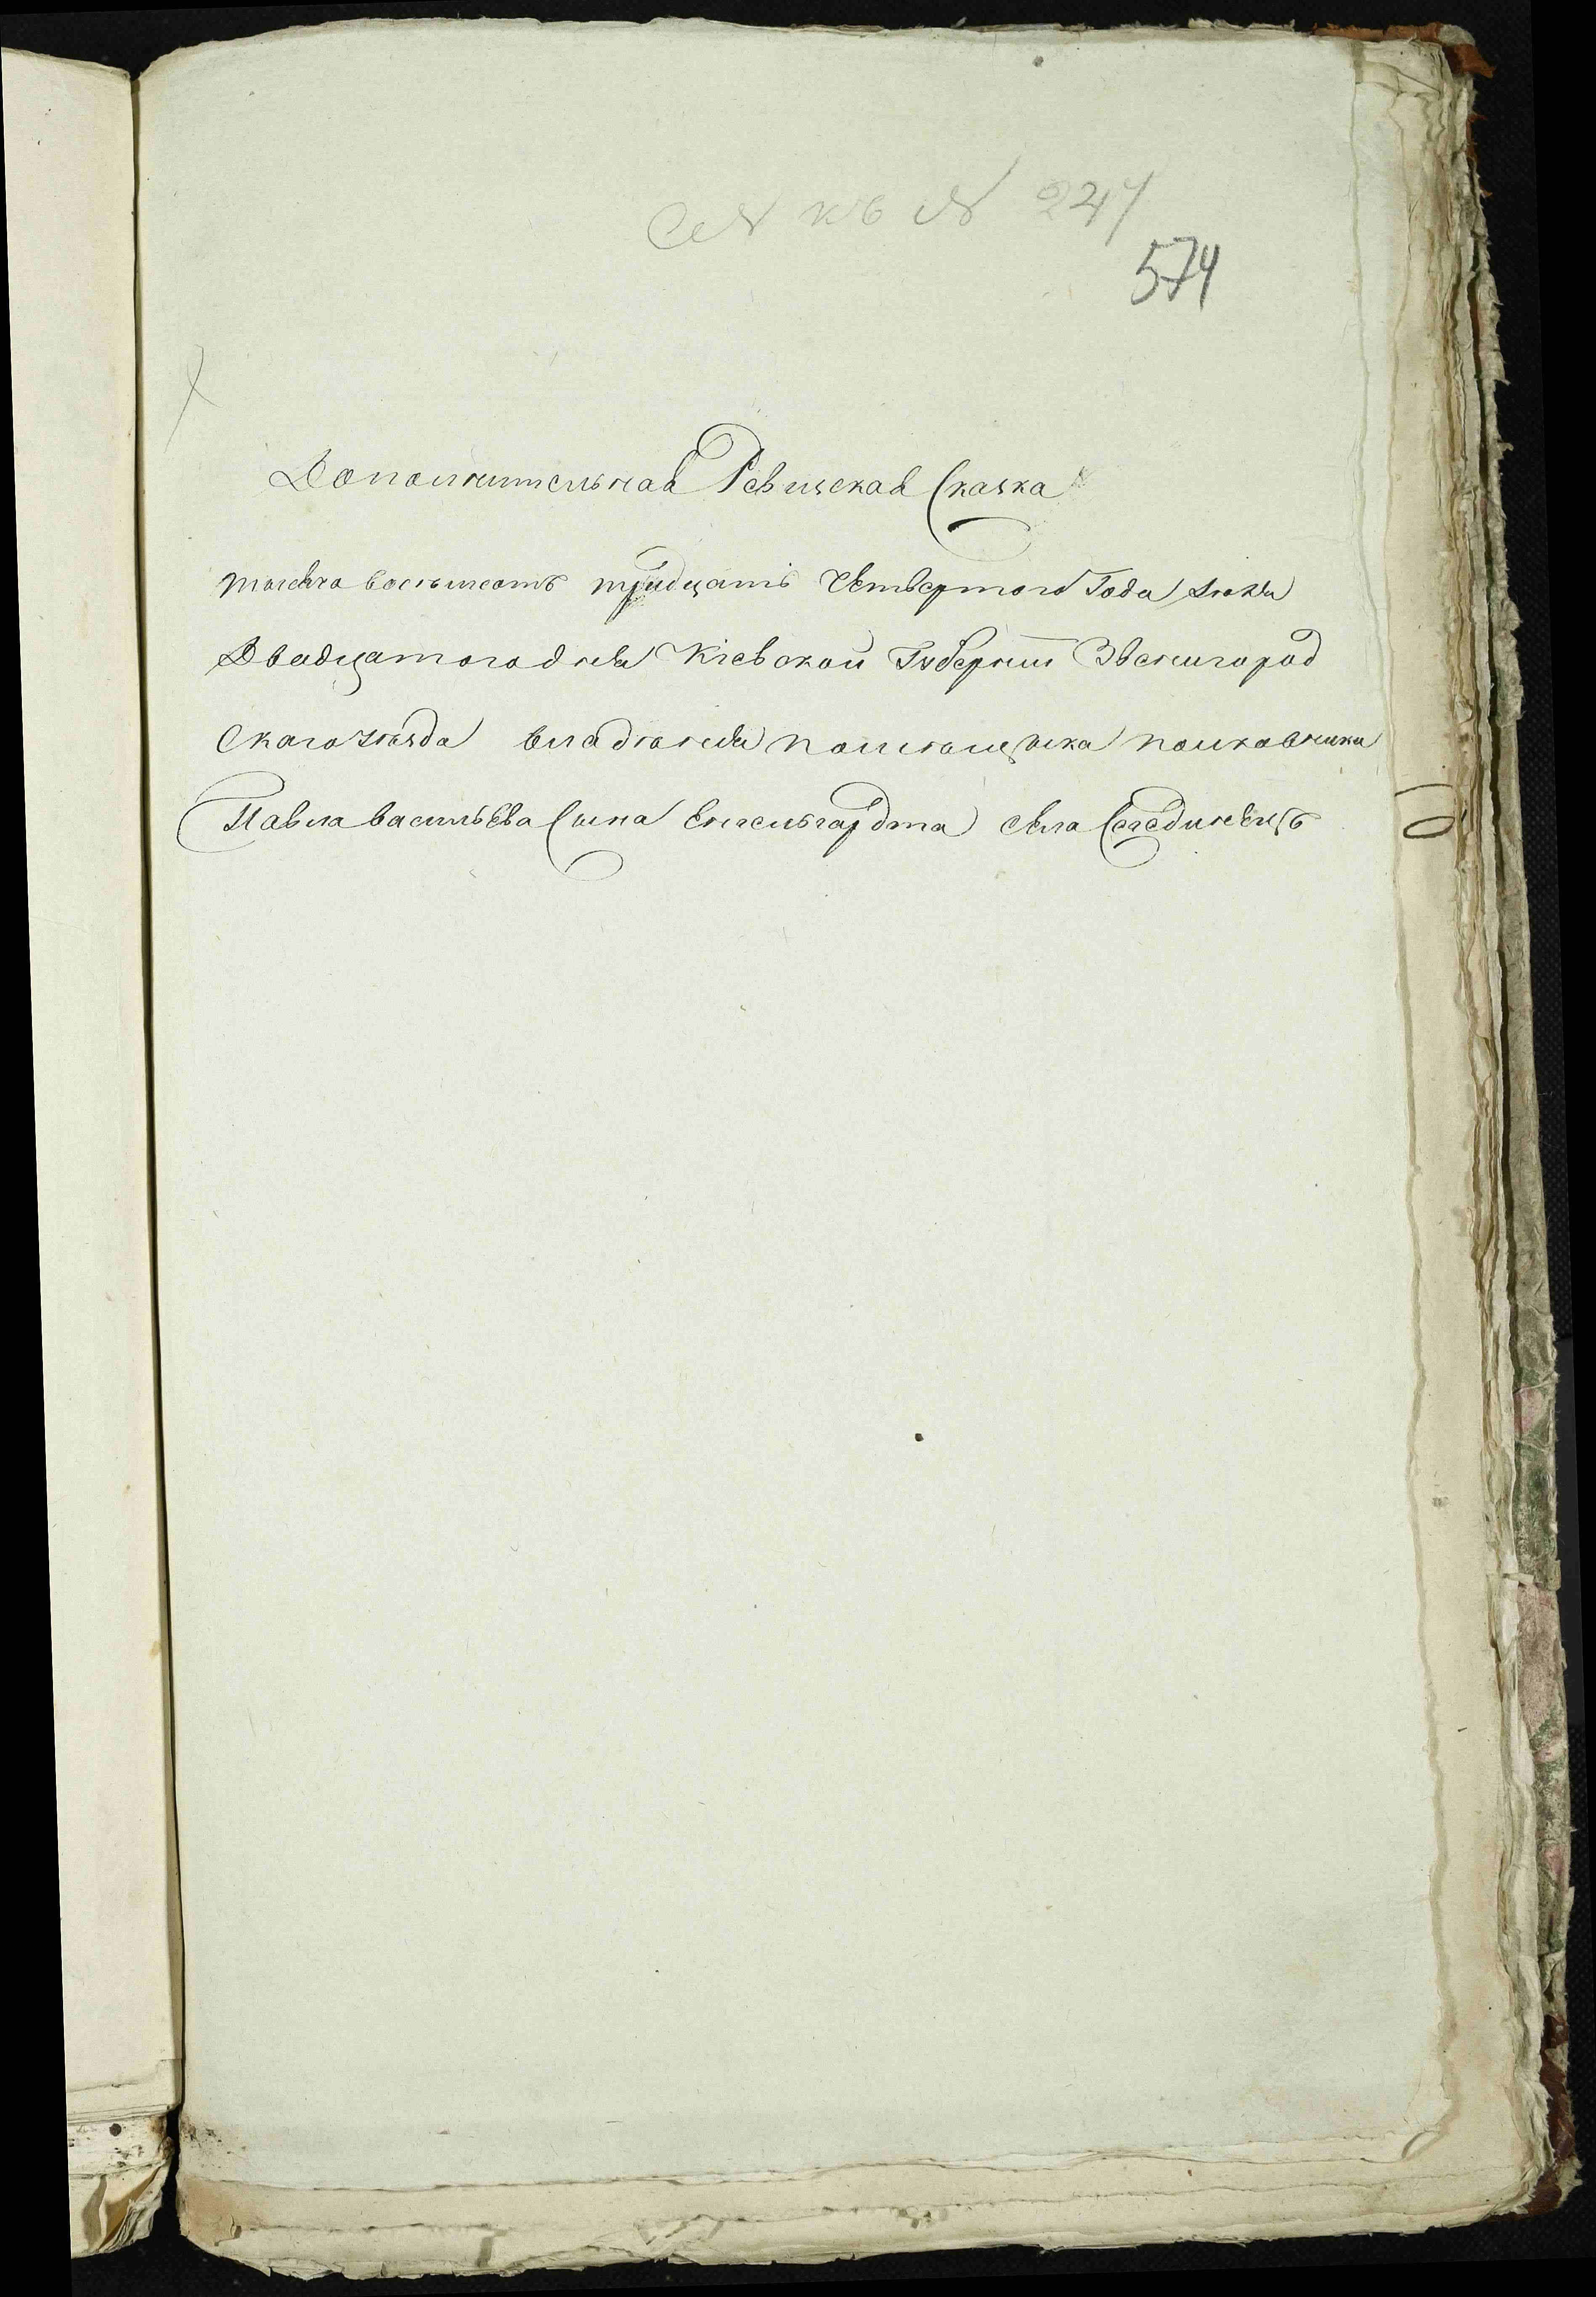 къ № 247
574
Дополнительная Ревизская Сказка
тысяча восемьсотъ тридцать Четвертого Года
Двадцатого дня Кіевской Губерніи Звенигород
Скаго уѣзда владѣнія помѣщика полковника
Павла васильева Сына Енгельгардта села